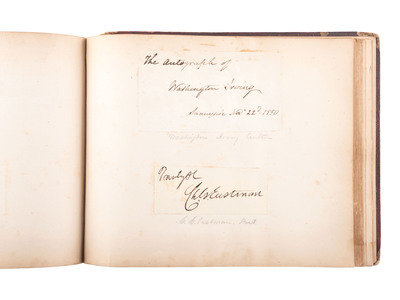 The autograph of
Washington Irving
Sunnyside Nov 22d 1850
Washington Irving
Chs Eastman
Eastman